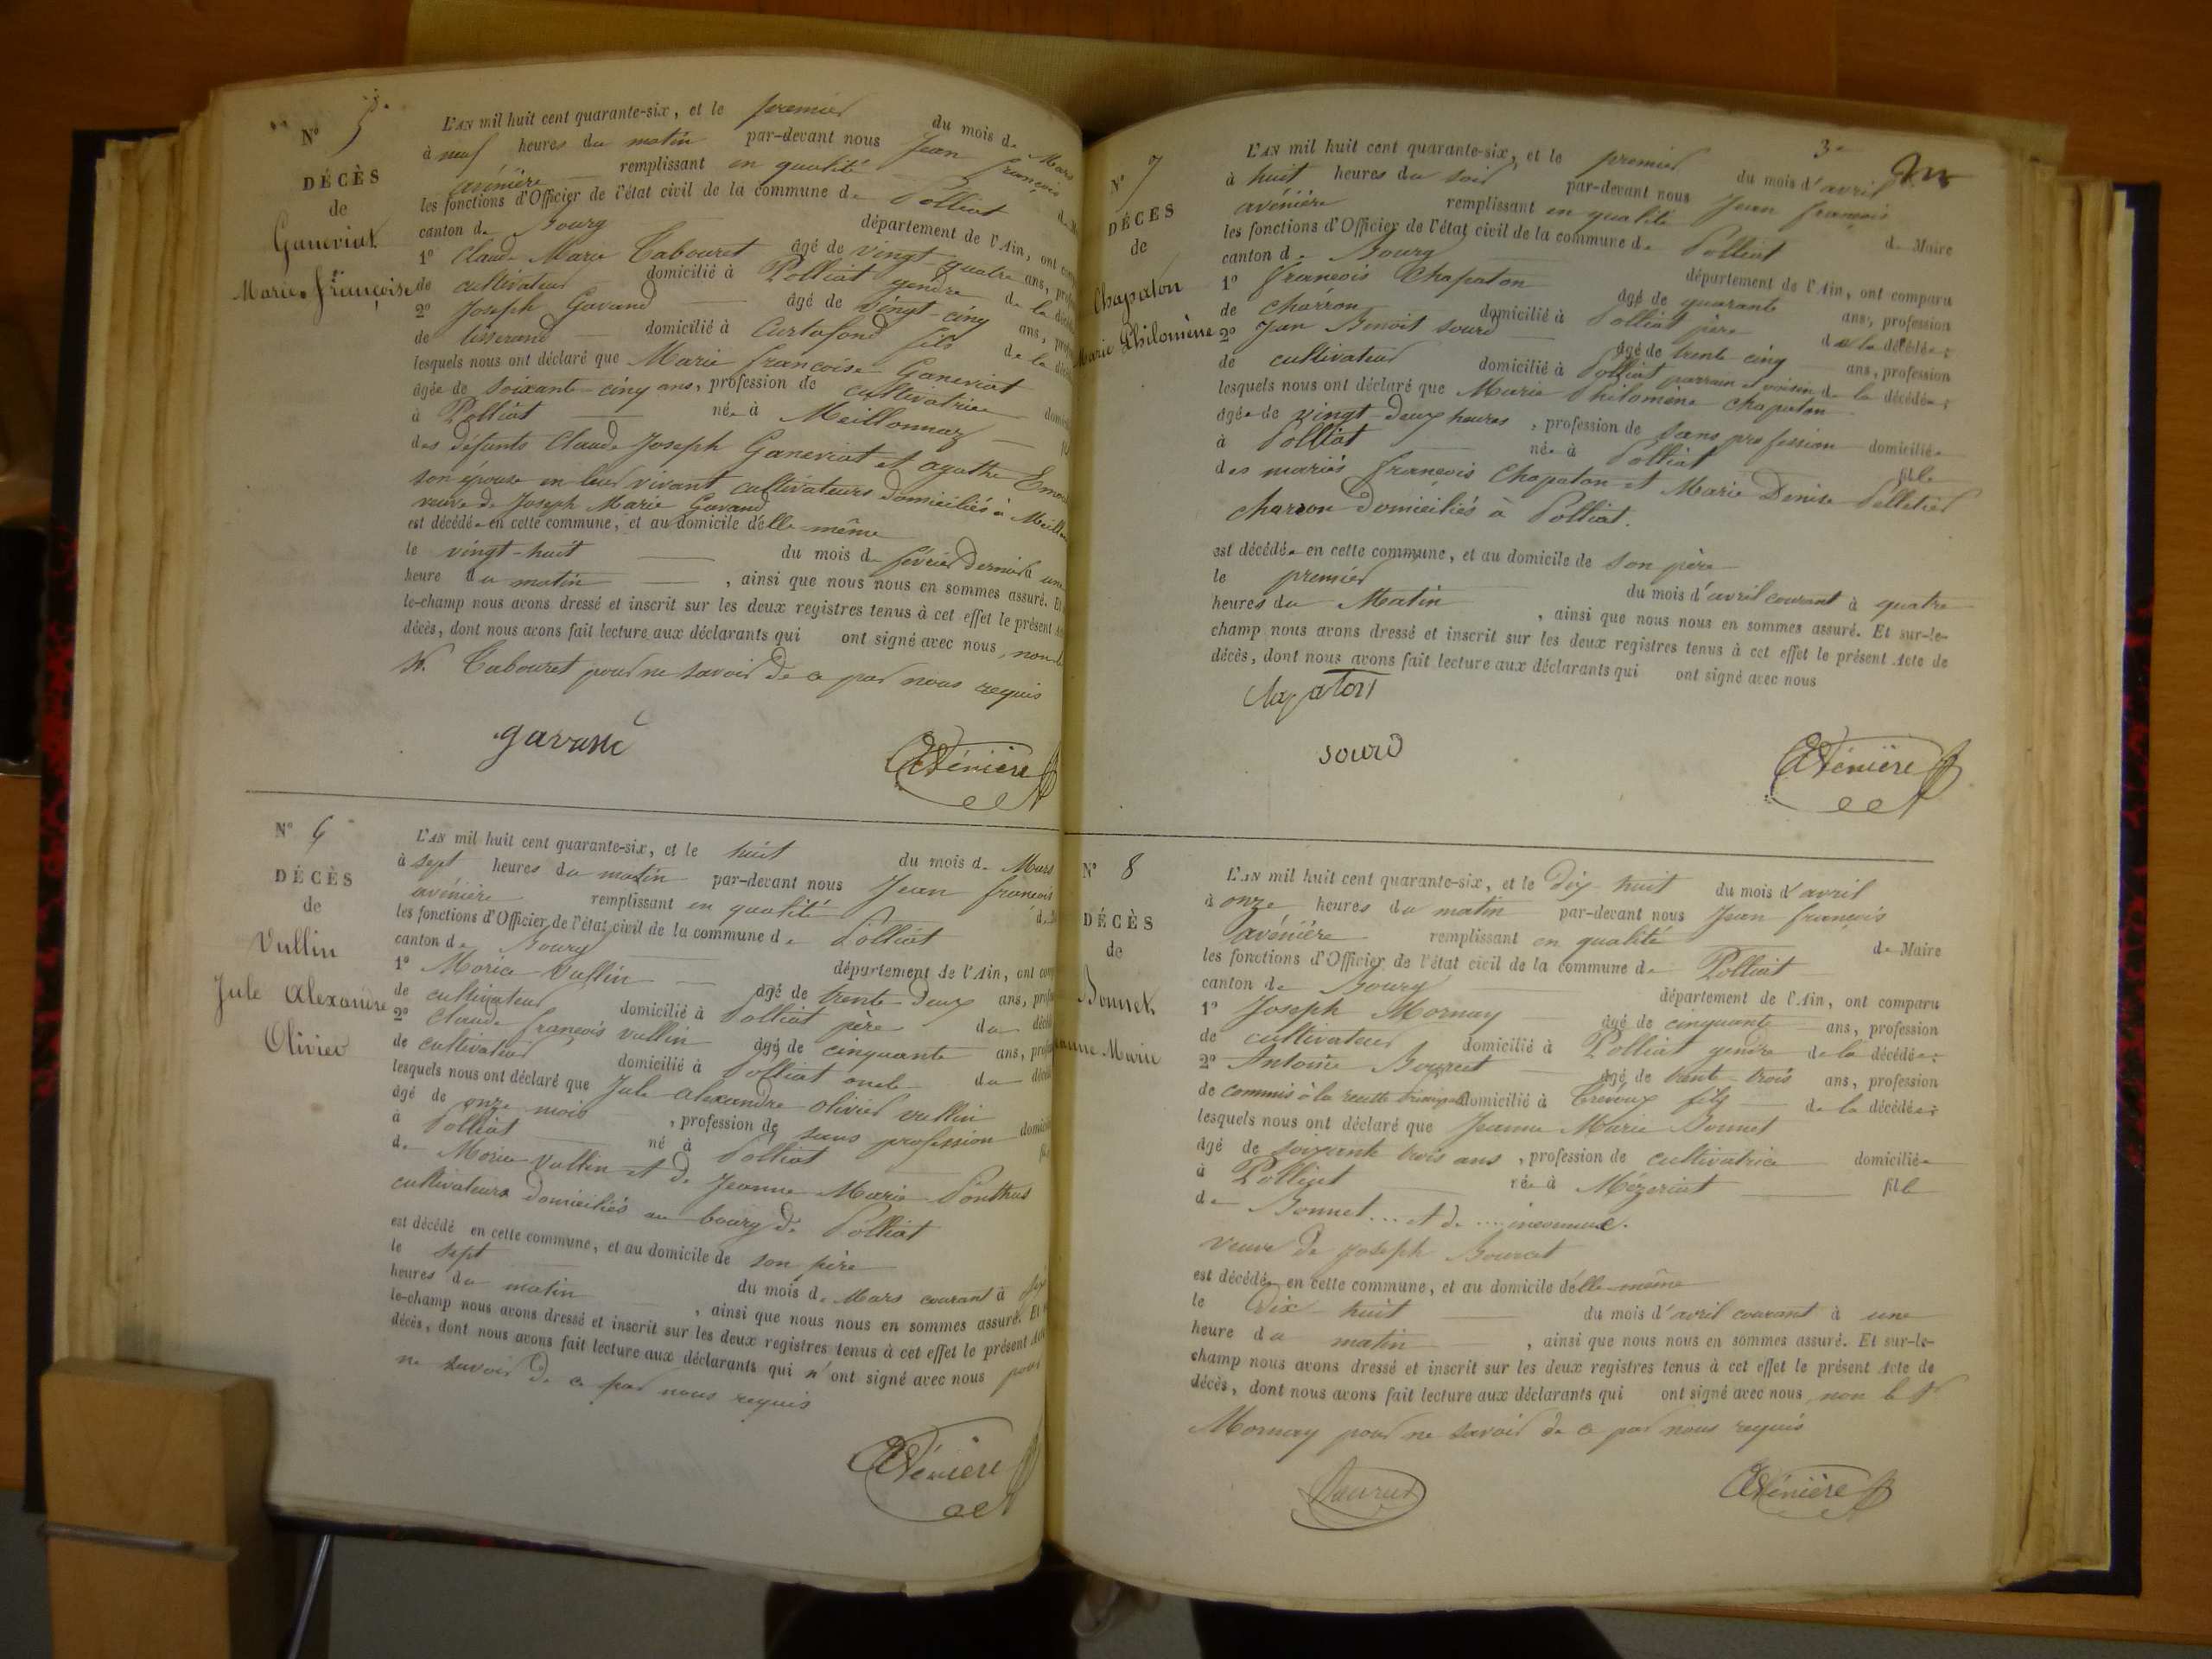 N° 5
DÉCÈS
de
Ganeriat
Marie Françoise
L'AN mil huit cent quarante-six, et le premier du mois de Mars
à neuf heures du matin par-devant nous Jean françois
avénière remplissant en qualité
les fonctions d'Officier de l'état civil de la commune de Polliat
canton de Bourg département de l'Ain, ont
1° Claude Marie Cabouret âgé de vingt quatre ans,
de cultivateur domicilié à Polliat gendre de la
2° Joseph Gavand âgé de vingt-cinq ans,
de tisserand domicilié à Curtafond fils de la
lesquels nous ont déclaré que Marie françoise Ganeriat
âgée de soixante-cinq ans, profession de cultivatrice
à Polliat née à Meillonnaz
des défunts Claude Joseph Ganeriat et agathe
son épouse en leur vivant cultivateurs domiciliés à
veuve de Joseph Marie Gavand
est décédée en cette commune, et au domicile d'elle-même
le vingt-huit du mois de février dernier à une
heure du matin, ainsi que nous nous en sommes assuré. Et
le-champ nous avons dressé et inscrit sur les deux registres tenus à cet effet le présent
décès, dont nous avons fait lecture aux déclarants qui ont signé avec nous, non le
Sr. Cabouret pour ne savoir de ce par nous requis
gavand
Avénière
N° 6
DÉCÈS
de
Vullin
Jule Alexandre
Olivier
L'AN mil huit cent quarante-six, et le huit du mois de Mars
à sept heures du matin par-devant nous Jean françois
avénière remplissant en qualité
les fonctions d'Officier de l'état civil de la commune de Polliat
canton de Bourg département de l'Ain, ont
1° Morice Vullin âgé de trente-deux ans,
de cultivateur domicilié à Polliat père du
2° Claude françois Vullin âgé de cinquante ans,
de cultivateur domicilié à Polliat oncle du
lesquels nous ont déclaré que Jule alexandre olivier vullin
âgé de onze mois, profession de sans profession
à Polliat né à Polliat
de Morice Vullin et de Jeanne Marie Ponthus
cultivateurs domiciliés au bourg de Polliat
est décédé en cette commune, et au domicile de son père
le sept du mois de Mars courant à
heures du matin, ainsi que nous nous en sommes assuré. Et
le-champ nous avons dressé et inscrit sur les deux registres tenus à cet effet le présent
décès, dont nous avons fait lecture aux déclarants qui n'ont signé avec nous pour
ne savoir de ce par nous requis
Avénière
3e
N° 7
DÉCÈS
de
Chapaton
Marie Philomène
L'AN mil huit cent quarante-six, et le premier du mois d'avril
à huit heures du soir par-devant nous Jean françois
avénière remplissant en qualité de Maire
les fonctions d'Officier de l'état civil de la commune de Polliat
canton de Bourg département de l'Ain, ont comparu
1° françois Chapaton âgé de quarante ans, profession
de charron domicilié à Polliat père de la décédée;
2° Jean Benoit sourd âgé de trente-cinq ans, profession
de cultivateur domicilié à Polliat parrain et voisin de la décédée;
lesquels nous ont déclaré que Marie Philomène Chapaton
âgée de vingt-deux heures, profession de sans profession domiciliée
à Polliat née à Polliat fille
des mariés françois Chapaton et Marie Denise Pelletier
charron domiciliés à Polliat.
est décédée en cette commune, et au domicile de son père
le premier du mois d'avril courant à quatre
heures du Matin, ainsi que nous nous en sommes assuré. Et sur-le-
champ nous avons dressé et inscrit sur les deux registres tenus à cet effet le présent Acte de
décès, dont nous avons fait lecture aux déclarants qui ont signé avec nous
Chapaton
sourd
Avénière
N° 8
DÉCÈS
de
Bonnet
Jeanne Marie
L'AN mil huit cent quarante-six, et le Dix-huit du mois d'avril
à onze heures du matin par-devant nous Jean françois
avénière remplissant en qualité de Maire
les fonctions d'Officier de l'état civil de la commune de Polliat
canton de Bourg département de l'Ain, ont comparu
1° Joseph Mornay âgé de cinquante ans, profession
de cultivateur domicilié à Polliat gendre de la décédée;
2° Antoine Bourcet âgé de trente-trois ans, profession
de commis à la recette domicilié à Trévoux fils de la décédée;
lesquels nous ont déclaré que Jeanne Marie Bonnet
âgé de soixante trois ans, profession de cultivatrice domiciliée
à Polliat née à Mézeriat fille
de Bonnet ... et de .... inconnue.
veuve de Joseph Bourcet
est décédée en cette commune, et au domicile d'elle-même
le Dix-huit du mois d'avril courant à une
heure du matin, ainsi que nous nous en sommes assuré. Et sur-le-
champ nous avons dressé et inscrit sur les deux registres tenus à cet effet le présent Acte de
décès, dont nous avons fait lecture aux déclarants qui ont signé avec nous, non le Sr
Mornay pour ne savoir de ce par nous requis
Avénière